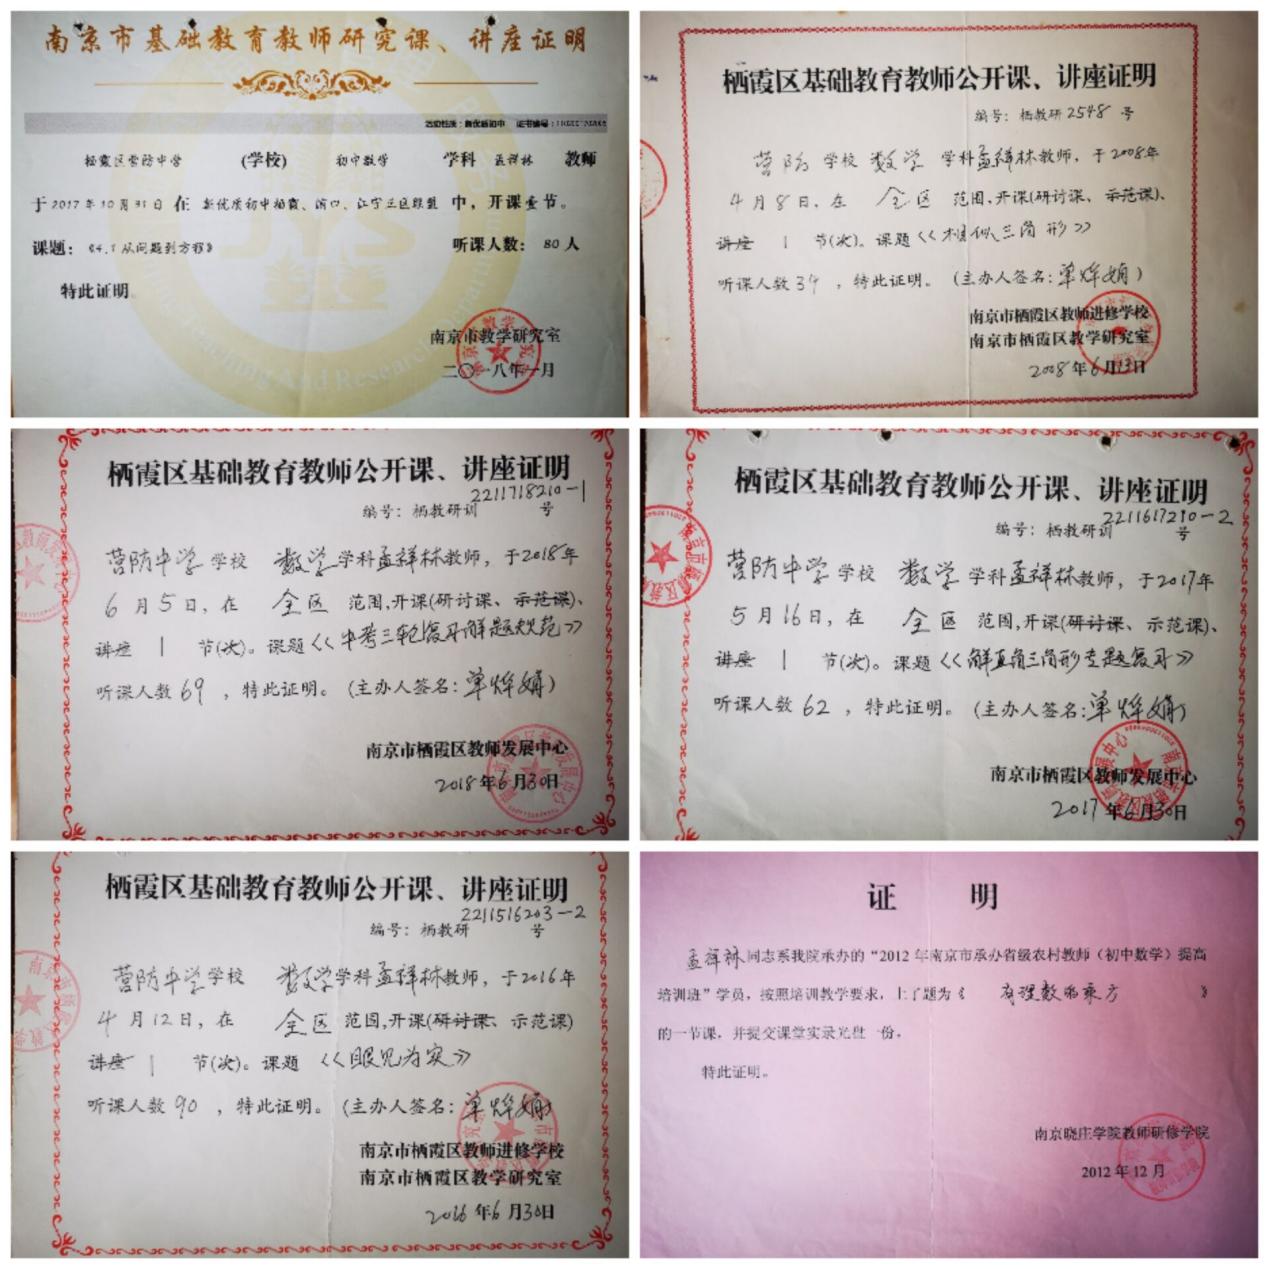 南京市基础教育教师研究课、讲座证明
活动性质：新优质初中 证书编号：
栖霞区营防中学 (学校) 初中数学 学科 孟祥林 教师
于2017年10月31日在 新优质初中栖霞、浦口、江宁三区联盟 中，开课壹节。
课题：《4.1从问题到方程》 听课人数：80人
特此证明。
南京市教学研究室
二〇一八年一月
栖霞区基础教育教师公开课、讲座证明
编号：栖教研2548号
营防 学校 数学 学科孟祥林教师，于2008年
4月8日，在 全区 范围,开课(研讨课、示范课)、
讲座 1 节(次)。课题《相似三角形》
听课人数39，特此证明。(主办人签名：单烨娟)
南京市栖霞区教师进修学校
南京市栖霞区教学研究室
2008年6月13日
栖霞区基础教育教师公开课、讲座证明
2211718210-1
编号：栖教研训 号
营防中学学校 数学学科孟祥林教师，于2018年
6月5日，在 全区 范围,开课(研讨课、示范课)、
讲座 1 节(次)。课题《中考三轮复习解题规范》
听课人数69，特此证明。(主办人签名：单烨娟)
南京市栖霞区教师发展中心
2018年6月30日
栖霞区基础教育教师公开课、讲座证明
2211617210-2
编号：栖教研训 号
营防中学学校 数学学科孟祥林教师，于2017年
5月16日，在 全区 范围,开课(研讨课、示范课)、
讲座 1 节(次)。课题《解直角三角形专题复习》
听课人数62，特此证明。(主办人签名：单烨娟)
南京市栖霞区教师发展中心
2017年6月30日
栖霞区基础教育教师公开课、讲座证明
2211516203-2
编号：栖教研 号
营防中学学校 数学学科孟祥林教师，于2016年
4月12日，在 全区 范围,开课(研讨课、示范课)
讲座 1 节(次)。课题《眼见为实》
听课人数90，特此证明。(主办人签名：单烨娟)
南京市栖霞区教师进修学校
南京市栖霞区教学研究室
2016年6月30日
证 明
孟祥林同志系我院承办的“2012年南京市承办省级农村教师（初中数学）提高
培训班”学员，按照培训教学要求，上了题为《 有理数的乘方 》
的一节课，并提交课堂实录光盘一份。
特此证明。
南京晓庄学院教师研修学院
2012年12月